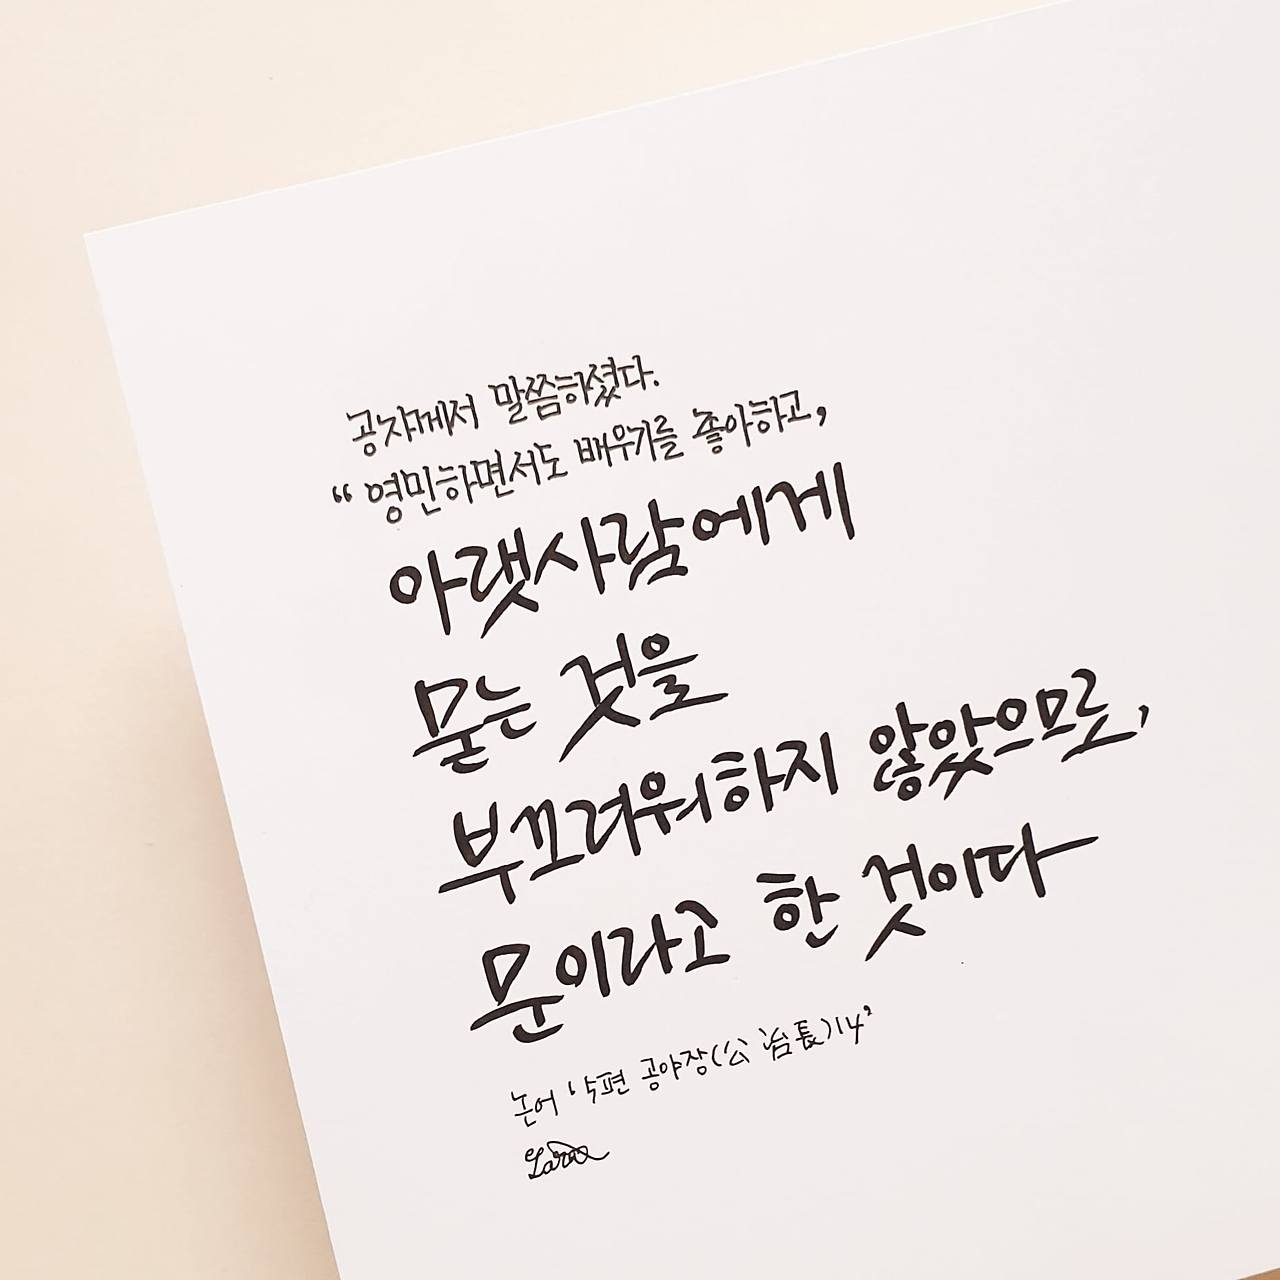 공자께서 말씀하셨다.
“영민하면서도 배우기를 좋아하고,
아랫사람에게
묻는 것을
부끄러워하지 않았으므로,
문이라고 한 것이다
논어 '5편 공야장(公冶長)14'